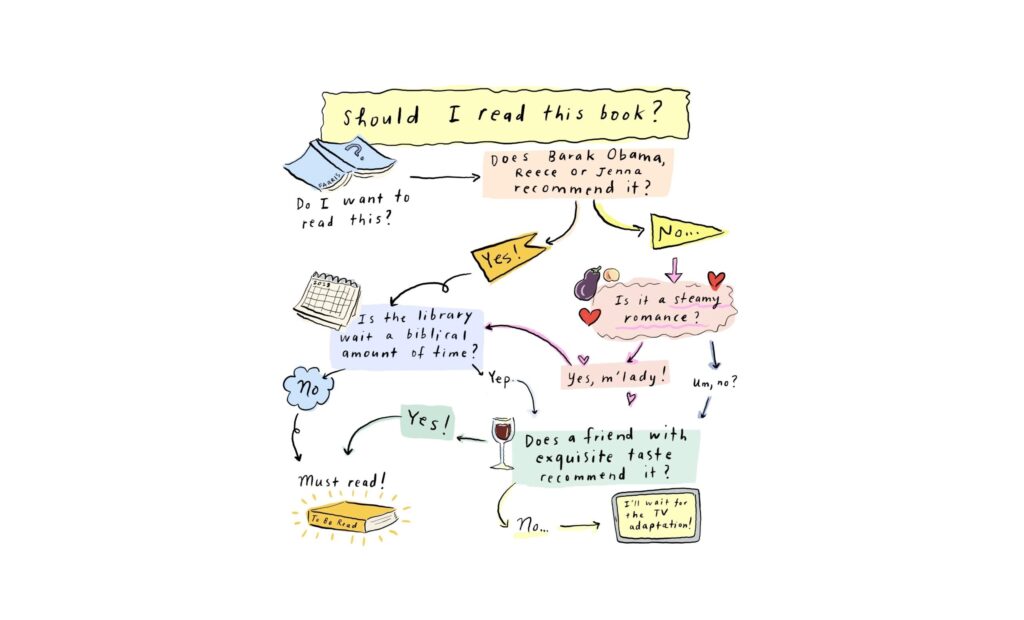 Should I read this book?
?
FARRIS
Do I want to
read this?
Does Barak Obama,
Reece or Jenna
recommend it?
Yes!
No...
Is it a steamy
romance?
Is the library
wait a biblical
amount of time?
No
Yep
Yes, m'lady!
Um, no?
Yes!
Does a friend with
exquisite taste
recommend it?
Must read!
To Be Read
No...
I'll wait for
the TV
adaptation!